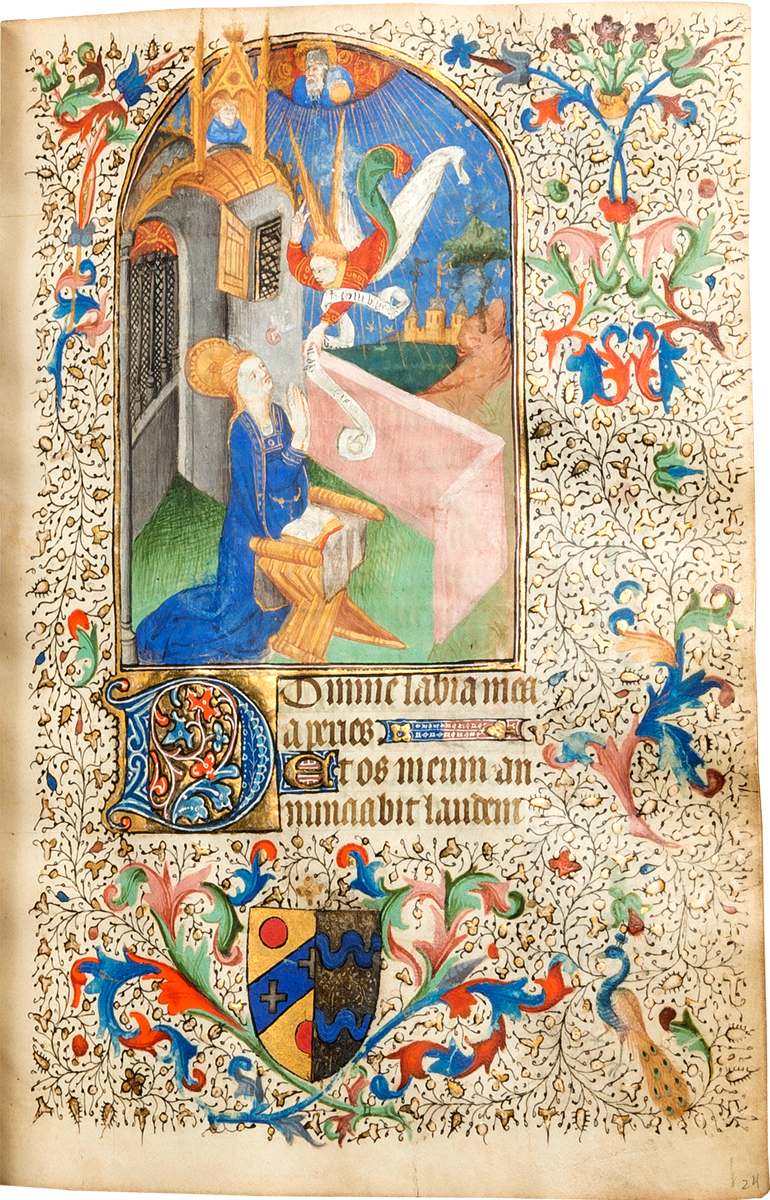 Domine labia mea
aperies
Et os meum an
nunciabit laudem
24